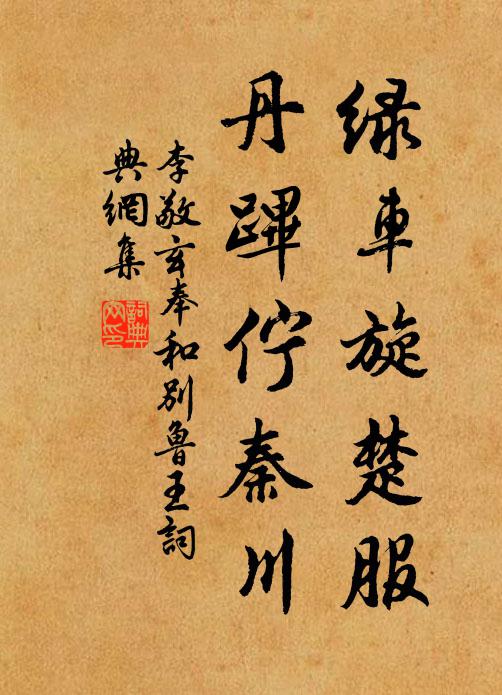 绿車旋楚服
丹蹕佇秦川
李敬玄奉和别魯王詞
典網集
詞典網印